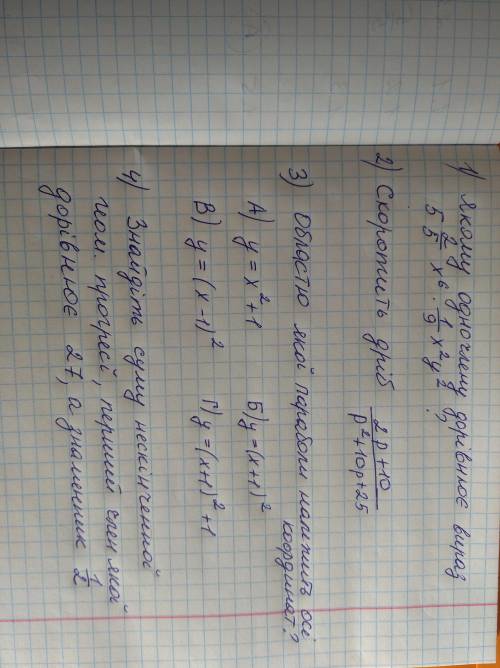 1) Якому одночлену дорівнює вираз
5 2/5 x⁶ · 1/9 x² y²?
2) Скоротить дріб (2p+10)/(p²+10p+25)
3) Областю якої параболи належить осі
координат?
А) y = x² + 1 Б) y = (x+1)²
В) y = (x-1)² Г) y = (x+1)² + 1
4) Знайдіть суму нескінченной
геом. прогресі, перший член якой
дорівнює 27, а знаменник 1/2